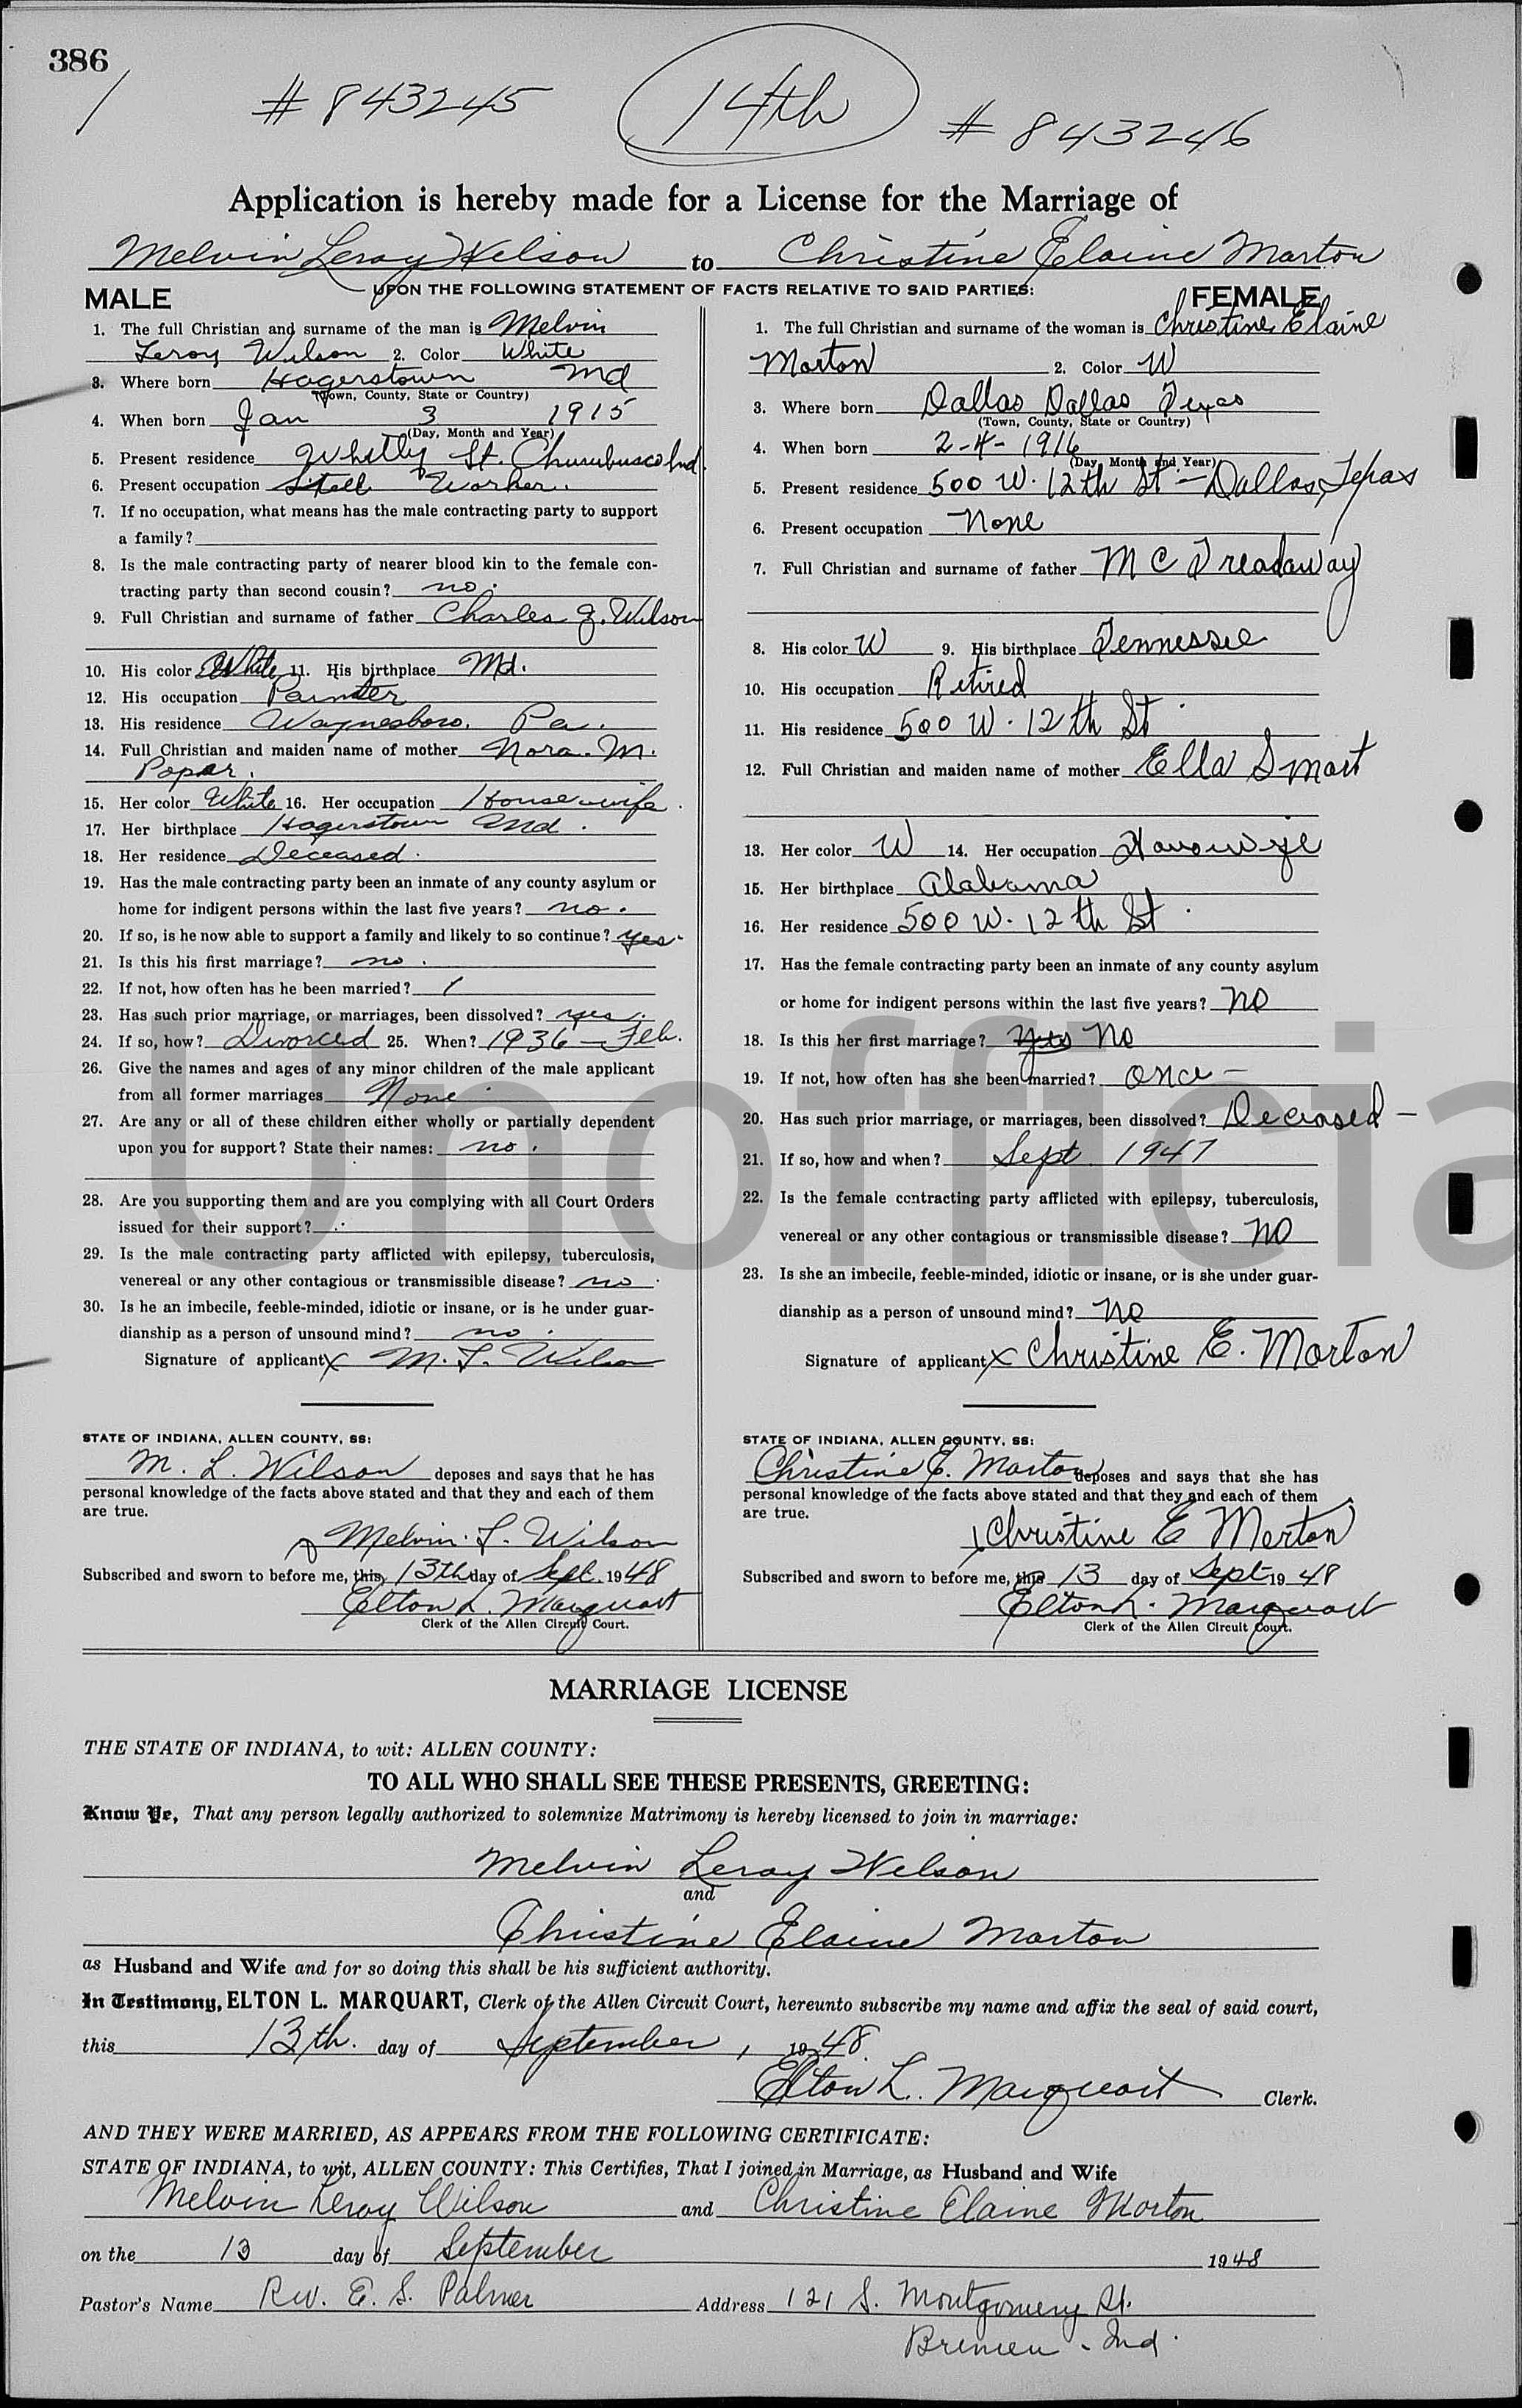 386
# 843245
14th
# 843246
Application is hereby made for a License for the Marriage of
Melvin Leroy Wilson to Christine Elaine Morton
UPON THE FOLLOWING STATEMENT OF FACTS RELATIVE TO SAID PARTIES:
MALE
1. The full Christian and surname of the man is Melvin
Leroy Wilson 2. Color White
3. Where born Hagerstown Md
(Town, County, State or Country)
4. When born Jan 3 1915
(Day, Month and Year)
5. Present residence Whitly St. Churubusco Ind.
6. Present occupation Steel Worker.
7. If no occupation, what means has the male contracting party to support
a family?
8. Is the male contracting party of nearer blood kin to the female con-
tracting party than second cousin? no.
9. Full Christian and surname of father Charles J. Wilson
10. His color White 11. His birthplace Md.
12. His occupation Painter
13. His residence Waynesboro, Pa.
14. Full Christian and maiden name of mother Nora. M.
Poper.
15. Her color White 16. Her occupation Housewife.
17. Her birthplace Hagerstown Md.
18. Her residence Deceased.
19. Has the male contracting party been an inmate of any county asylum or
home for indigent persons within the last five years? no.
20. If so, is he now able to support a family and likely to so continue? yes.
21. Is this his first marriage? no.
22. If not, how often has he been married? 1
23. Has such prior marriage, or marriages, been dissolved? yes.
24. If so, how? Divorced 25. When? 1936 - Feb.
26. Give the names and ages of any minor children of the male applicant
from all former marriages None
27. Are any or all of these children either wholly or partially dependent
upon you for support? State their names: no.
28. Are you supporting them and are you complying with all Court Orders
issued for their support?
29. Is the male contracting party afflicted with epilepsy, tuberculosis,
venereal or any other contagious or transmissible disease? no
30. Is he an imbecile, feeble-minded, idiotic or insane, or is he under guar-
dianship as a person of unsound mind? no.
Signature of applicant x M. L. Wilson
STATE OF INDIANA, ALLEN COUNTY, SS:
M. L. Wilson deposes and says that he has
personal knowledge of the facts above stated and that they and each of them
are true.
x Melvin. L. Wilson
Subscribed and sworn to before me, this 13th day of Sept. 1948
Elton L. Marquart
Clerk of the Allen Circuit Court.
FEMALE
1. The full Christian and surname of the woman is Christine Elaine
Morton 2. Color W
3. Where born Dallas Dallas Texas
(Town, County, State or Country)
4. When born 2-4-1916
(Day, Month and Year)
5. Present residence 500 W. 12th St - Dallas, Texas
6. Present occupation None
7. Full Christian and surname of father M C Treadaway
8. His color W 9. His birthplace Tennessee
10. His occupation Retired
11. His residence 500 W. 12th St.
12. Full Christian and maiden name of mother Ella Smart
13. Her color W 14. Her occupation Housewife
15. Her birthplace Alabama
16. Her residence 500 W. 12th St.
17. Has the female contracting party been an inmate of any county asylum
or home for indigent persons within the last five years? No
18. Is this her first marriage? Yes No
19. If not, how often has she been married? once -
20. Has such prior marriage, or marriages, been dissolved? Deceased -
21. If so, how and when? Sept 1947
22. Is the female contracting party afflicted with epilepsy, tuberculosis,
venereal or any other contagious or transmissible disease? No
23. Is she an imbecile, feeble-minded, idiotic or insane, or is she under guar-
dianship as a person of unsound mind? No
Signature of applicant x Christine E. Morton
STATE OF INDIANA, ALLEN COUNTY, SS:
Christine E. Morton deposes and says that she has
personal knowledge of the facts above stated and that they and each of them
are true.
x Christine E Morton
Subscribed and sworn to before me, this 13 day of Sept 1948
Elton L. Marquart
Clerk of the Allen Circuit Court.
Unofficia
MARRIAGE LICENSE
THE STATE OF INDIANA, to wit: ALLEN COUNTY:
TO ALL WHO SHALL SEE THESE PRESENTS, GREETING:
Know Ye, That any person legally authorized to solemnize Matrimony is hereby licensed to join in marriage:
Melvin Leroy Wilson
and
Christine Elaine Morton
as Husband and Wife and for so doing this shall be his sufficient authority.
In Testimony, ELTON L. MARQUART, Clerk of the Allen Circuit Court, hereunto subscribe my name and affix the seal of said court,
this 13th. day of September, 1948.
Elton L. Marquart Clerk.
AND THEY WERE MARRIED, AS APPEARS FROM THE FOLLOWING CERTIFICATE:
STATE OF INDIANA, to wit, ALLEN COUNTY: This Certifies, That I joined in Marriage, as Husband and Wife
Melvin Leroy Wilson and Christine Elaine Morton
on the 13 day of September 1948
Pastor's Name Rev. E. S. Palmer Address 121 S. Montgomery St.
Bremen. Ind.